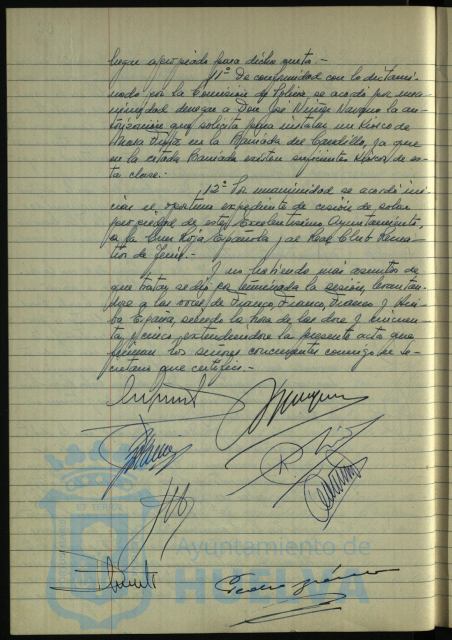 lugar apropiado para dicho puesto.-
11º De conformidad con lo dictami-
nado por la Comisión de Policía, se acordó por una-
nimidad denegar a Don José Núñez Navarro la au-
torización que solicita para instalar un Kiosco de
en la Barriada del Carmelo, ya que
en la citada Barriada existen suficientes Kioscos de es-
ta clase.-
12º Por unanimidad se acordó ini-
ciar el oportuno expediente de cesión de solar
propiedad de este Excelentísimo Ayuntamiento,
a la Cruz Roja Española y al Real Club Recrea-
tivo de Tenis.-
Y no habiendo más asuntos de
que tratar, se dió por terminada la sesión, levantan-
dose a las voces de Franco, Franco, Franco y Arri-
ba España, siendo la hora de las doce y cincuen-
ta y cinco, extendiéndose la presente acta que
firman los señores concurrentes conmigo el Se-
cretario que certifico.-
Ayuntamiento de
HUELVA